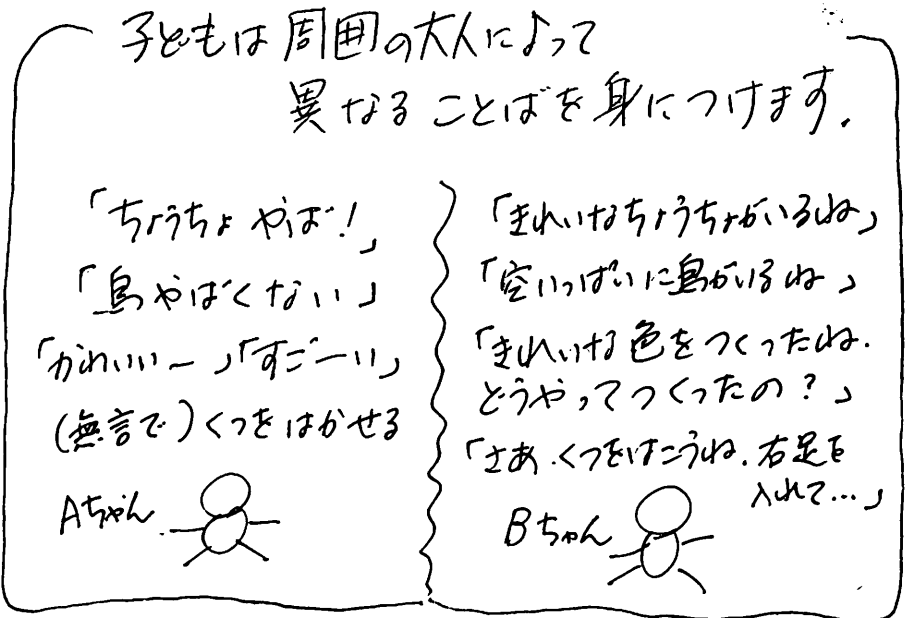 子どもは周囲の大人によって
異なることばを身につけます.
「ちょうちょやば!」
「鳥やばくない」
「かわいいー」「すごーい」
(無言で)くつをはかせる
Aちゃん
「きれいなちょうちょがいるね」
「空いっぱいに鳥がいるね」
「きれいな色をつくったね.
どうやってつくったの?」
「さあ.くつをはこうね.右足を
入れて...」
Bちゃん